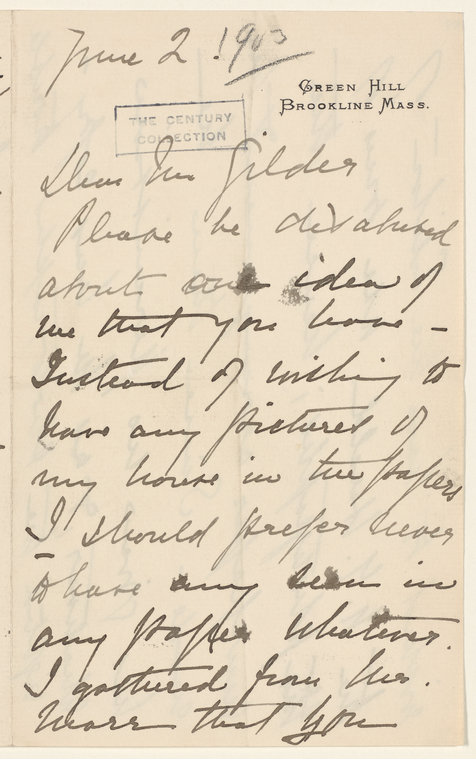 June 2. 1903
GREEN HILL
BROOKLINE MASS.
THE CENTURY
COLLECTION
Dear Mr Gilder
Please be disabused
about one idea of
me that you have –
Instead of wishing to
have any pictures of
my house in the papers
I should prefer never
to have any seen in
any paper whatever.
I gathered from Mrs.
that you